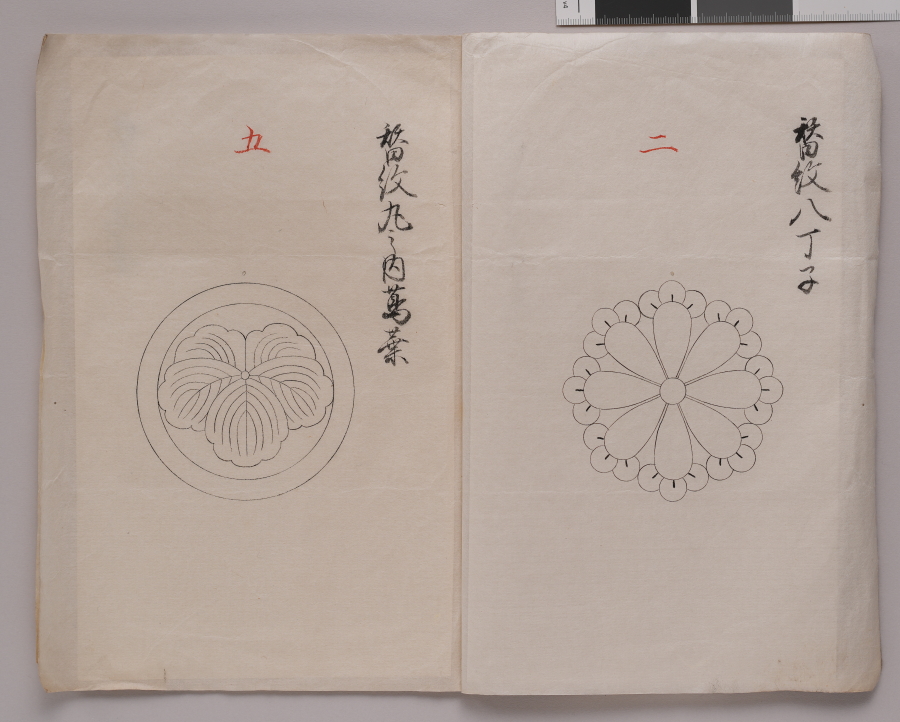 替紋八丁子
二
替紋丸之内蔦葉
五